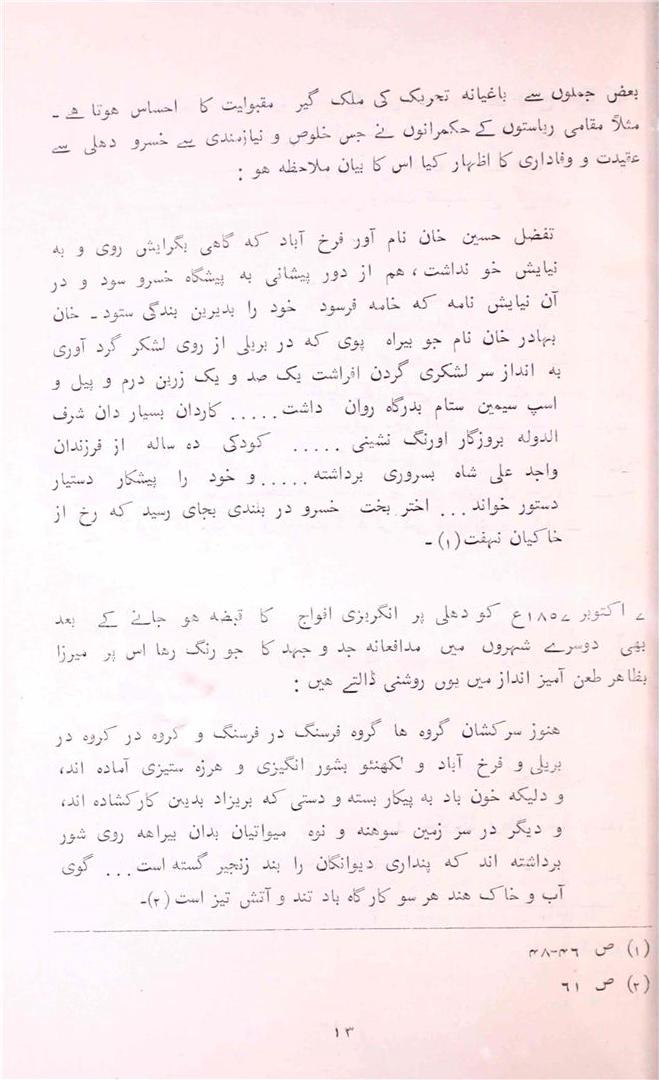 بعض جملوں سے باغیانہ تحریک کی ملک گیر مقبولیت کا احساس ہوتا ہے ۔
مثلاً مقامی ریاستوں کے حکمرانوں نے جس خلوص و نیازمندی سے خسرو دھلی سے
عقیدت و وفاداری کا اظہار کیا اس کا بیان ملاحظہ ہو :
تفضل حسین خان نام آور فرخ آباد کہ گاھی بگرایش روی و بہ
نیایش خو نداشت ، ھم از دور پیشانی بہ پیشگاہ خسرو سود و در
آن نیایش نامہ کہ خامہ فرسود خود را بدیرین بندگی ستود ۔ خان
بہادر خان نام جو بیراہ پوی کہ در بریلی از روی لشکر گرد آوری
بہ انداز سر لشکری گردن افراشت یک صد و یک زرین درم و پیل و
اسپ سیمین ستام بدرگاہ روان داشت ..... کاردان بسیار دان شرف
الدولہ بروزگار اورنگ نشینی ..... کودکی دہ سالہ از فرزندان
واجد علی شاہ بسروری برداشتہ ..... و خود را پیشکار دستیار
دستور خواند ... اختر بخت خسرو در بلندی بجای رسید کہ رخ از
خاکیان نہفت (۱) ۔
۷ اکتوبر ۱۸۵۷ع کو دھلی پر انگریزی افواج کا قبضہ ھو جانے کے بعد
بھی دوسرے شہروں میں مدافعانہ جد و جہد کا جو رنگ رھا اس پر میرزا
بظاھر طعن آمیز انداز میں یوں روشنی ڈالتے ھیں :
ھنوز سرکشان گروہ ھا گروہ فرسنگ در فرسنگ و کروہ در کروہ در
بریلی و فرخ آباد و لکھنئو بشور انگیزی و ھرزہ ستیزی آمادہ اند،
و دلیکہ خون باد بہ پیکار بستہ و دستی کہ بریزاد بدین کار کشادہ اند،
و دیگر در سر زمین سوھنہ و نوہ میواتیان بدان بیراھہ روی شور
برداشتہ اند کہ پنداری دیوانگان را بند زنجیر گستہ است ... گوی
آب و خاک ھند ھر سو کار گاہ باد تند و آتش تیز است (۲)۔
(۱) ص ۴۶-۴۸
(۲) ص ۶۱
۱۳